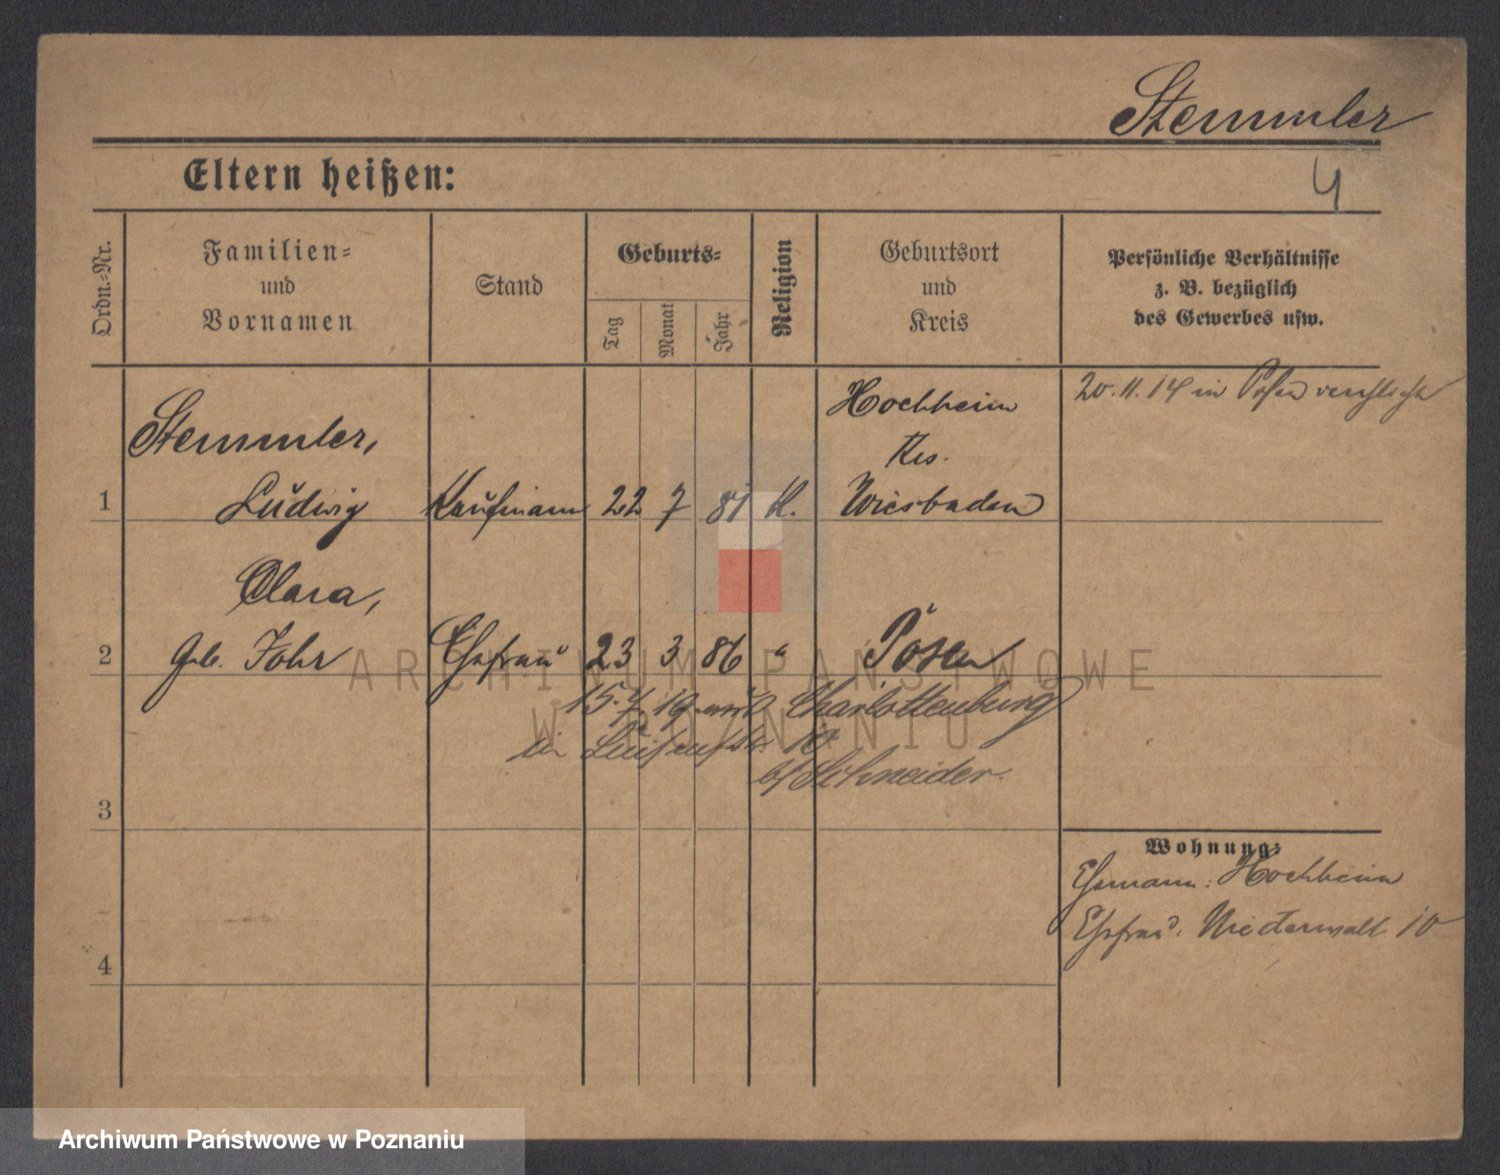 Stemmler
Eltern heißen:
4
Ordn.-Nr.
Familien-
und
Vornamen
Stand
Geburts-
Tag
Monat
Jahr
Religion
Geburtsort
und
Kreis
Persönliche Verhältnisse
z. B. bezüglich
des Gewerbes usw.
20.11.14 in Posen
Hochheim
Stemmler,
Krs.
1 Ludwig Kaufmann 22 7 81 K. Wiesbaden
Clara,
2 geb. Johr Ehefrau 23 3 86 " Posen
15.7.19 nach Charlottenburg
10
b/ Schneider.
3
Wohnung:
Ehemann: Hochheim
Ehefrau: Niederwall 10
4
ARCHIWUM PAŃSTWOWE
W POZNANIU
Archiwum Państwowe w Poznaniu